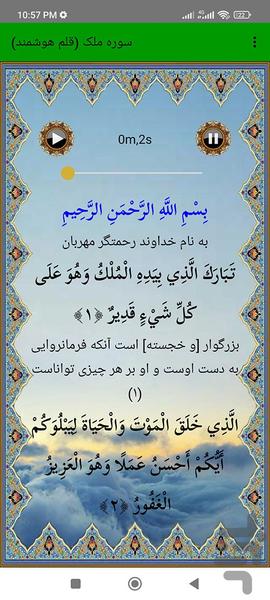 10:57 PM
122
سوره ملک (قلم هوشمند)
0m,2s
بِسْمِ اللَّهِ الرَّحْمَنِ الرَّحِيمِ
به نام خداوند رحمتگر مهربان
تَبَارَكَ الَّذِي بِيَدِهِ الْمُلْكُ وَهُوَ عَلَى
كُلِّ شَيْءٍ قَدِيرٌ ﴿۱﴾
بزرگوار [و خجسته] است آنکه فرمانروایی
به دست اوست و او بر هر چیزی تواناست
(۱)
الَّذِي خَلَقَ الْمَوْتَ وَالْحَيَاةَ لِيَبْلُوَكُمْ
أَيُّكُمْ أَحْسَنُ عَمَلًا وَهُوَ الْعَزِيزُ
الْغَفُورُ ﴿۲﴾